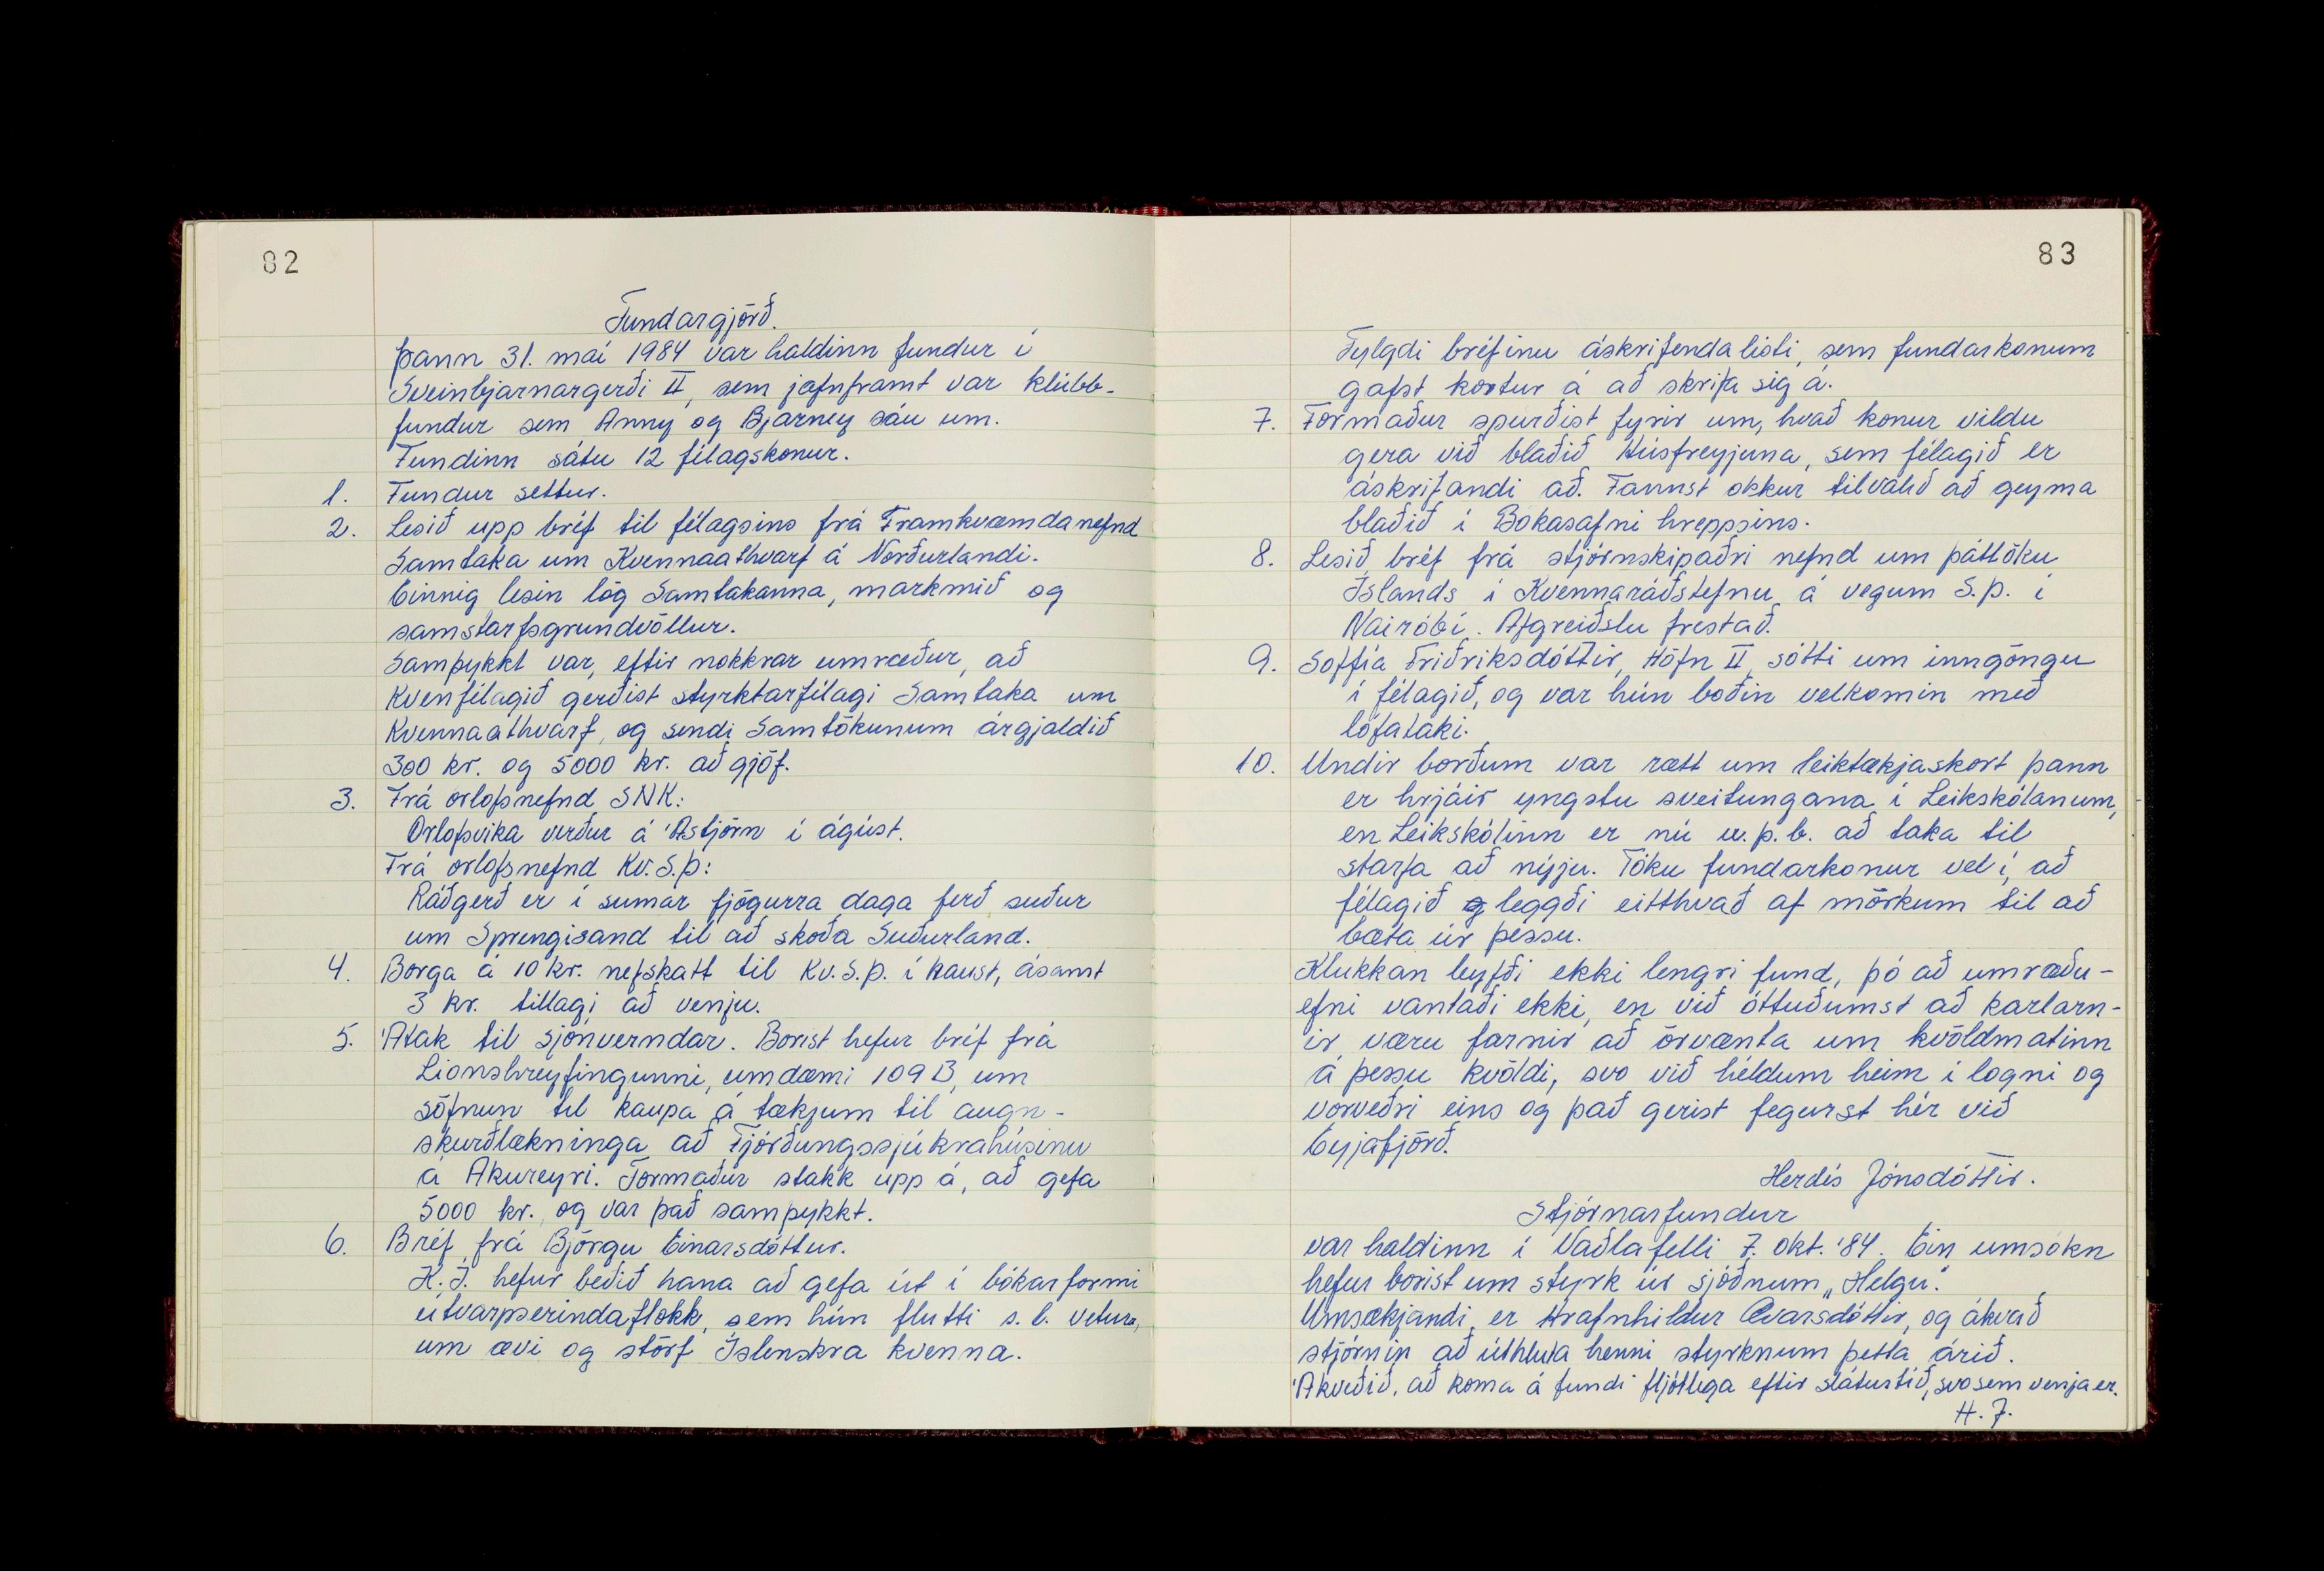 82
Fundargjörð.
Þann 31. maí 1984 var haldinn fundur í
Sveinbjarnargerði II, sem jafnframt var klúbb-
fundur sem Anny og Bjarney sáu um.
Fundinn sátu 12 félagskonur.
1. Fundur settur.
2. Lesið upp bréf til félagsins frá Framkvæmdanefnd
Samtaka um Kvennaathvarf á Norðurlandi.
Einnig lesin lög Samtakanna, markmið og
samstarfsgrundvöllur.
Samþykkt var, eftir nokkrar umræður, að
Kvenfélagið gerðist styrktarfélagi Samtaka um
Kvennaathvarf, og sendi Samtökunum árgjaldið
300 kr. og 5000 kr. að gjöf.
3. Frá orlofsnefnd SNK:
Orlofsvika verður á Ástjörn í ágúst.
Frá orlofsnefnd Kv.S.Þ:
Ráðgerð er í sumar fjögurra daga ferð suður
um Sprengisand til að skoða Suðurland.
4. Borga á 10 kr. nefskatt til Kv.S.Þ. í haust, ásamt
3 kr. tillagi að venju.
5. Átak til sjónverndar. Borist hefur bréf frá
Lionshreyfingunni, umdæmi 109 B, um
söfnun til kaupa á tækjum til augn-
skurðlækninga að Fjórðungssjúkrahúsinu
á Akureyri. Formaður stakk upp á, að gefa
5000 kr., og var það samþykkt.
6. Bréf frá Björgu Einarsdóttur.
K.Í. hefur beðið hana að gefa út í bókarformi
útvarpserindaflokk, sem hún flutti s.l. vetur,
um ævi og störf Íslenskra kvenna.
83
Fylgdi bréfinu áskrifendalisti, sem fundarkonum
gafst kostur á að skrifa sig á.
7. Formaður spurðist fyrir um, hvað konur vildu
gera við blaðið Húsfreyjuna, sem félagið er
áskrifandi að. Fannst okkur tilvalið að geyma
blaðið í Bókasafni hreppsins.
8. Lesið bréf frá stjórnskipaðri nefnd um þáttöku
Íslands í Kvennaráðstefnu á vegum S.Þ. í
Nairóbí. Afgreiðslu frestað.
9. Soffía Friðriksdóttir, Höfn II, sótti um inngöngu
í félagið, og var hún boðin velkomin með
lófataki.
10. Undir borðum var rætt um leiktækjaskort þann
er hrjáir yngstu sveitungana í Leikskólanum,
en Leikskólinn er nú u.þ.b. að taka til
starfa að nýju. Tóku fundarkonur vel í, að
félagið leggði eitthvað af mörkum til að
bæta úr þessu.
Klukkan leyfði ekki lengri fund, þó að umræðu-
efni vantaði ekki, en við óttuðumst að karlarn-
ir væru farnir að örvænta um kvöldmatinn
á þessu kvöldi, svo við héldum heim í logni og
vorveðri eins og það gerist fegurst hér við
Eyjafjörð.
Herdís Jónsdóttir.
Stjórnarfundur
var haldinn í Vaðlafelli 7. okt. '84. Ein umsókn
hefur borist um styrk úr sjóðnum „Helgu".
Umsækjandi er Hrafnhildur Ævarsdóttir, og ákvað
stjórnin að úthluta henni styrknum þetta árið.
Ákveðið, að koma á fundi fljótlega eftir sláturtíð, svo sem venja er.
H.J.